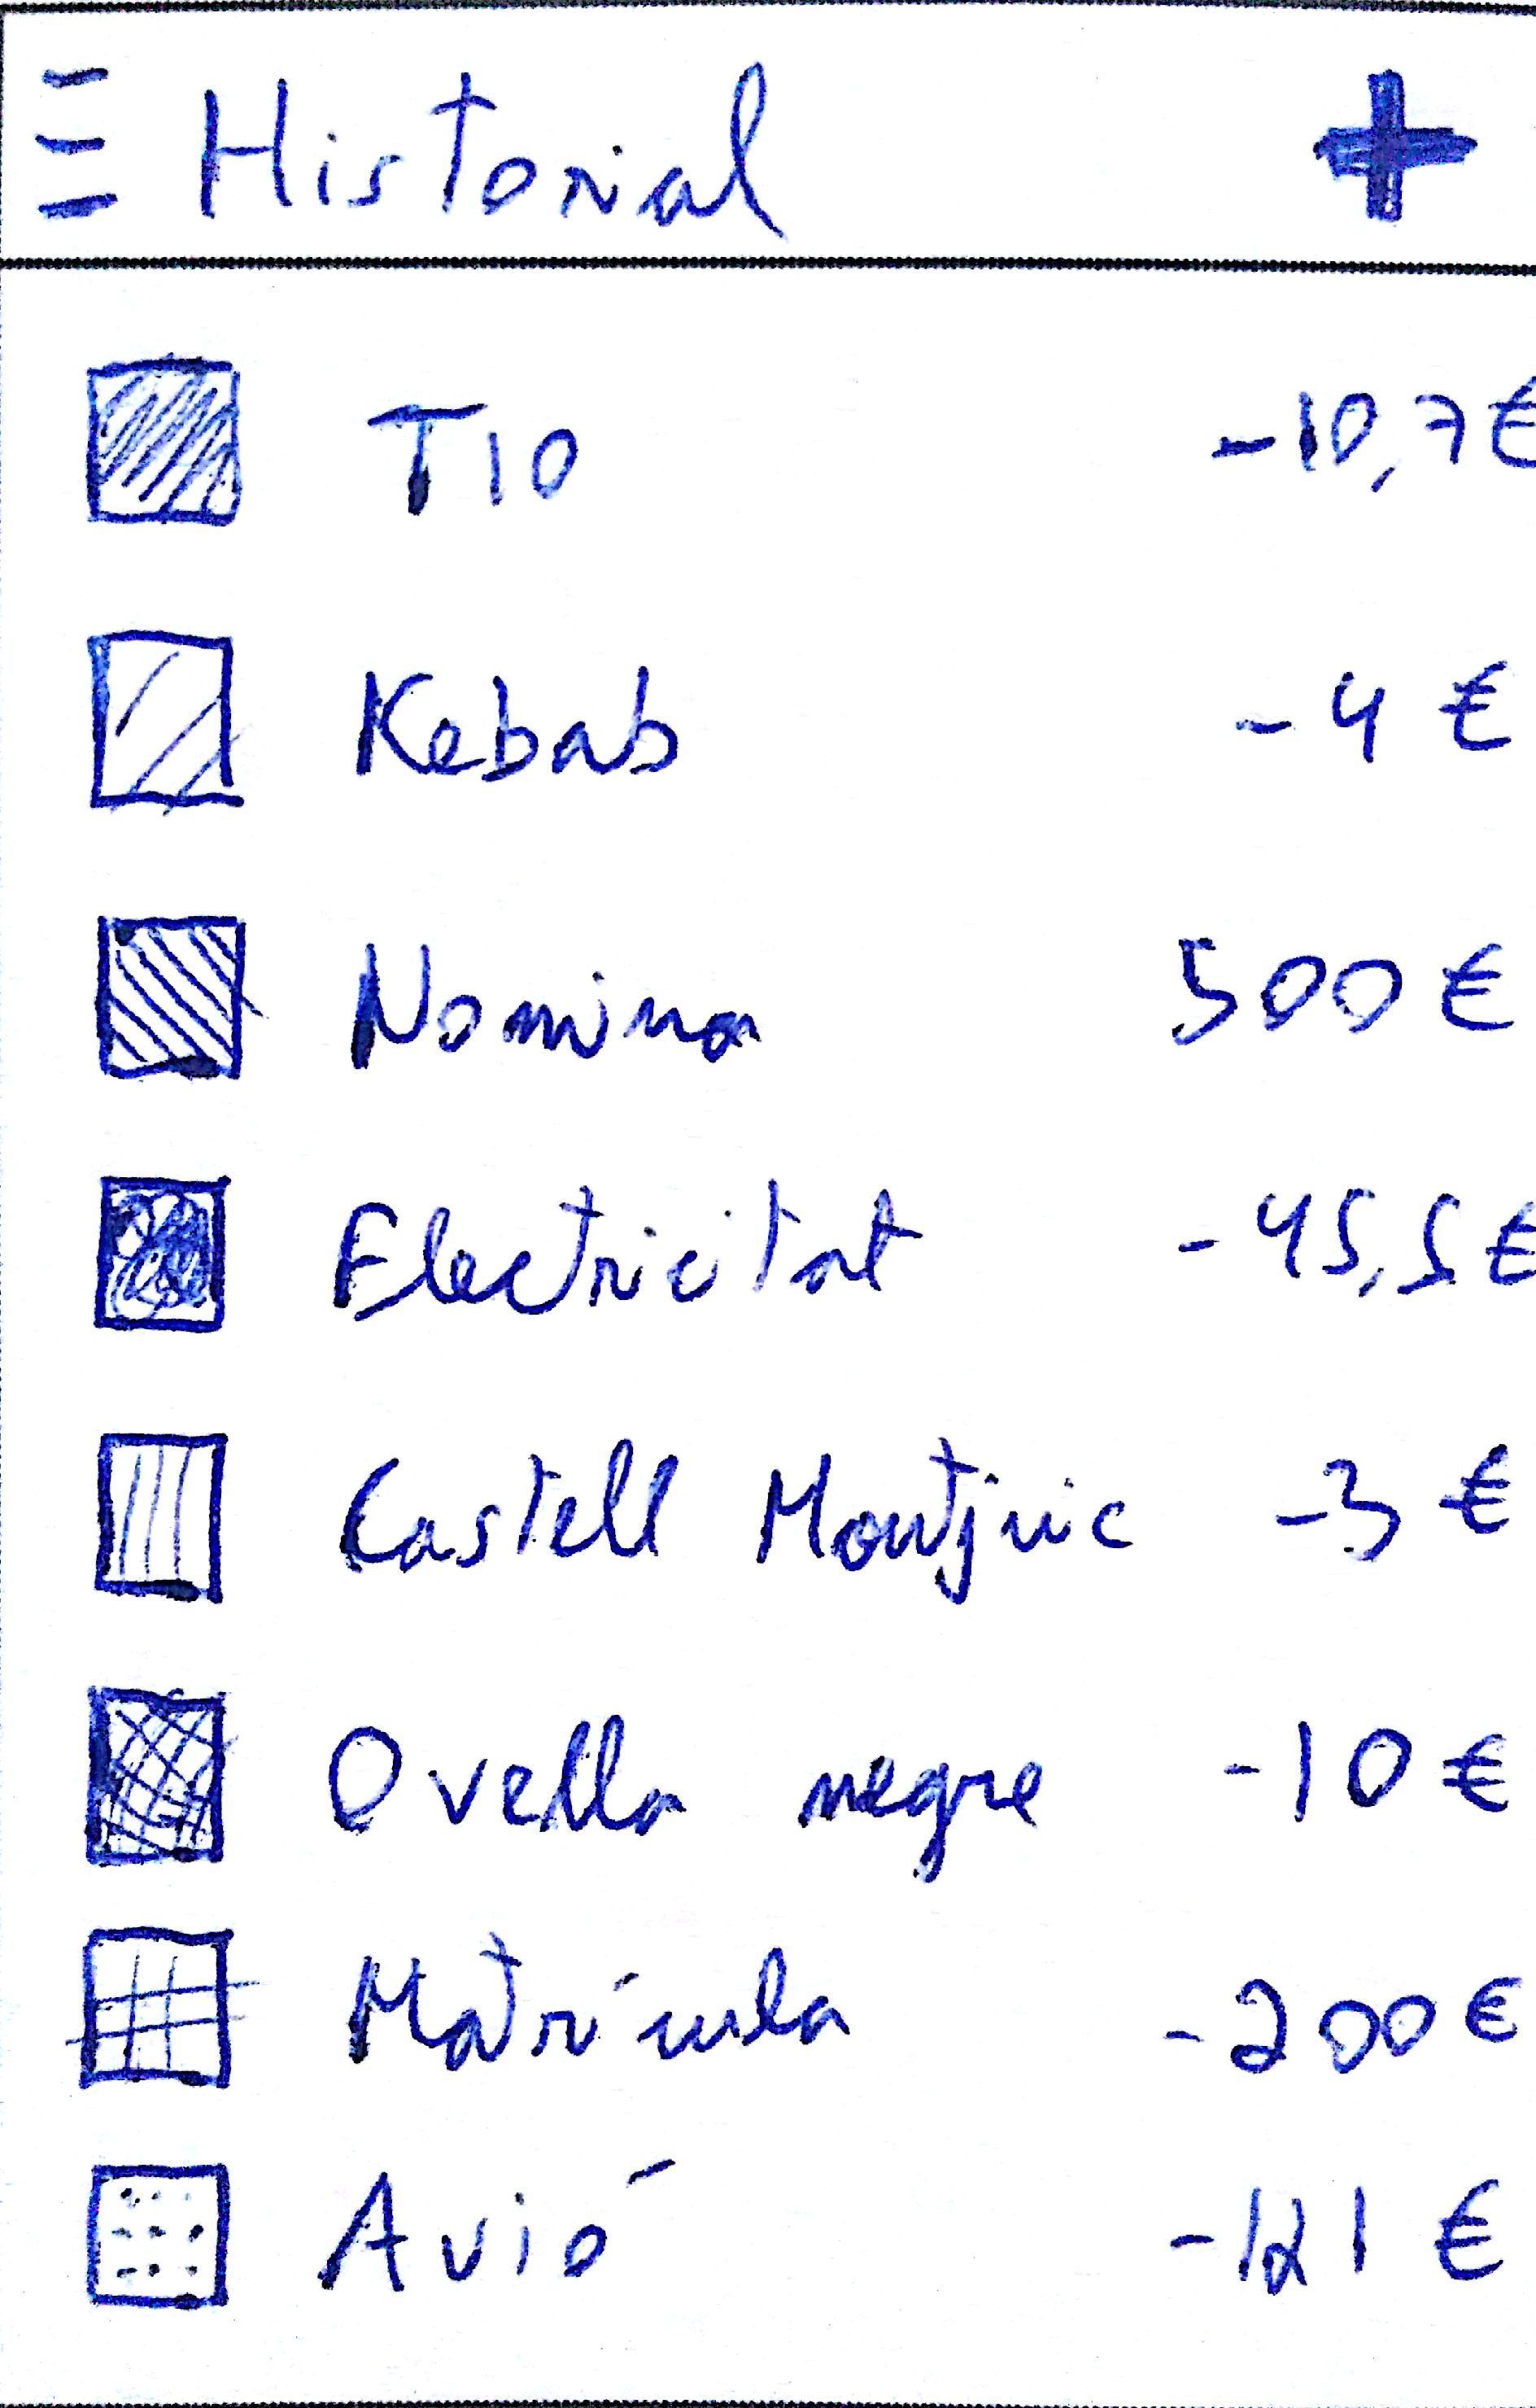 Historial +
T10 -10,7€
Kebab -4 €
Nomina 500 €
Electricitat -45,5€
Castell Montjuic -3 €
Ovella negre -10 €
Matrícula -200 €
Avió -121 €